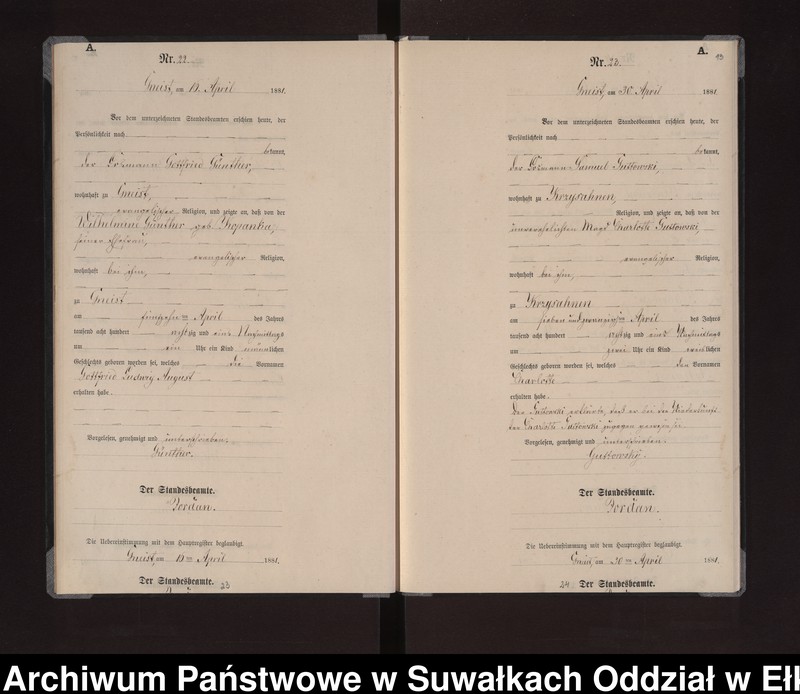 A.
Nr. 22.
Gneist, am 19. April 1881.
Vor dem unterzeichneten Standesbeamten erschien heute, der
Persönlichkeit nach
bekannt,
der Gottfried Günther,
wohnhaft zu Gneist,
evangelischer Religion, und zeigte an, daß von der
Wilhelmine Günther geb.
seiner Ehefrau,
evangelischer Religion,
wohnhaft bei ihm,
zu Gneist
am fünfzehnten April des Jahrs
tausend acht hundert achtzig und eins Nachmittags
um ein Uhr ein Kind männlichen
Geschlechts geboren worden sei, welches die Vornamen
Gottfried Ludwig August
erhalten habe.
Vorgelesen, genehmigt und unterschrieben.
Günther.
Der Standesbeamte.
Jordan.
Die Uebereinstimmung mit dem Hauptregister beglaubigt.
Gneist, am 19ten April 1881.
Der Standesbeamte. 23
A.
Nr. 23.
Gneist, am 30. April 1881.
Vor dem unterzeichneten Standesbeamten erschien heute, der
Persönlichkeit nach
bekannt,
der Samuel Gustowski,
wohnhaft zu Krzysahnen,
Religion, und zeigte an, daß von der
unverehelichten Magd Charlotte Gustowski,
evangelischer Religion,
wohnhaft bei ihm,
zu Krzysahnen
am sieben und zwanzigsten April des Jahrs
tausend acht hundert achtzig und eins Nachmittags
um zwei Uhr ein Kind weiblichen
Geschlechts geboren worden sei, welches den Vornamen
Charlotte
erhalten habe.
Der Gustowski erklärte, daß er bei der Niederkunft
der Charlotte Gustowski zugegen gewesen sei.
Vorgelesen, genehmigt und unterschrieben.
Gustowsky.
Der Standesbeamte.
Jordan.
Die Uebereinstimmung mit dem Hauptregister beglaubigt.
Gneist, am 30ten April 1881.
24 Der Standesbeamte.
Archiwum Państwowe w Suwałkach Oddział w Eł